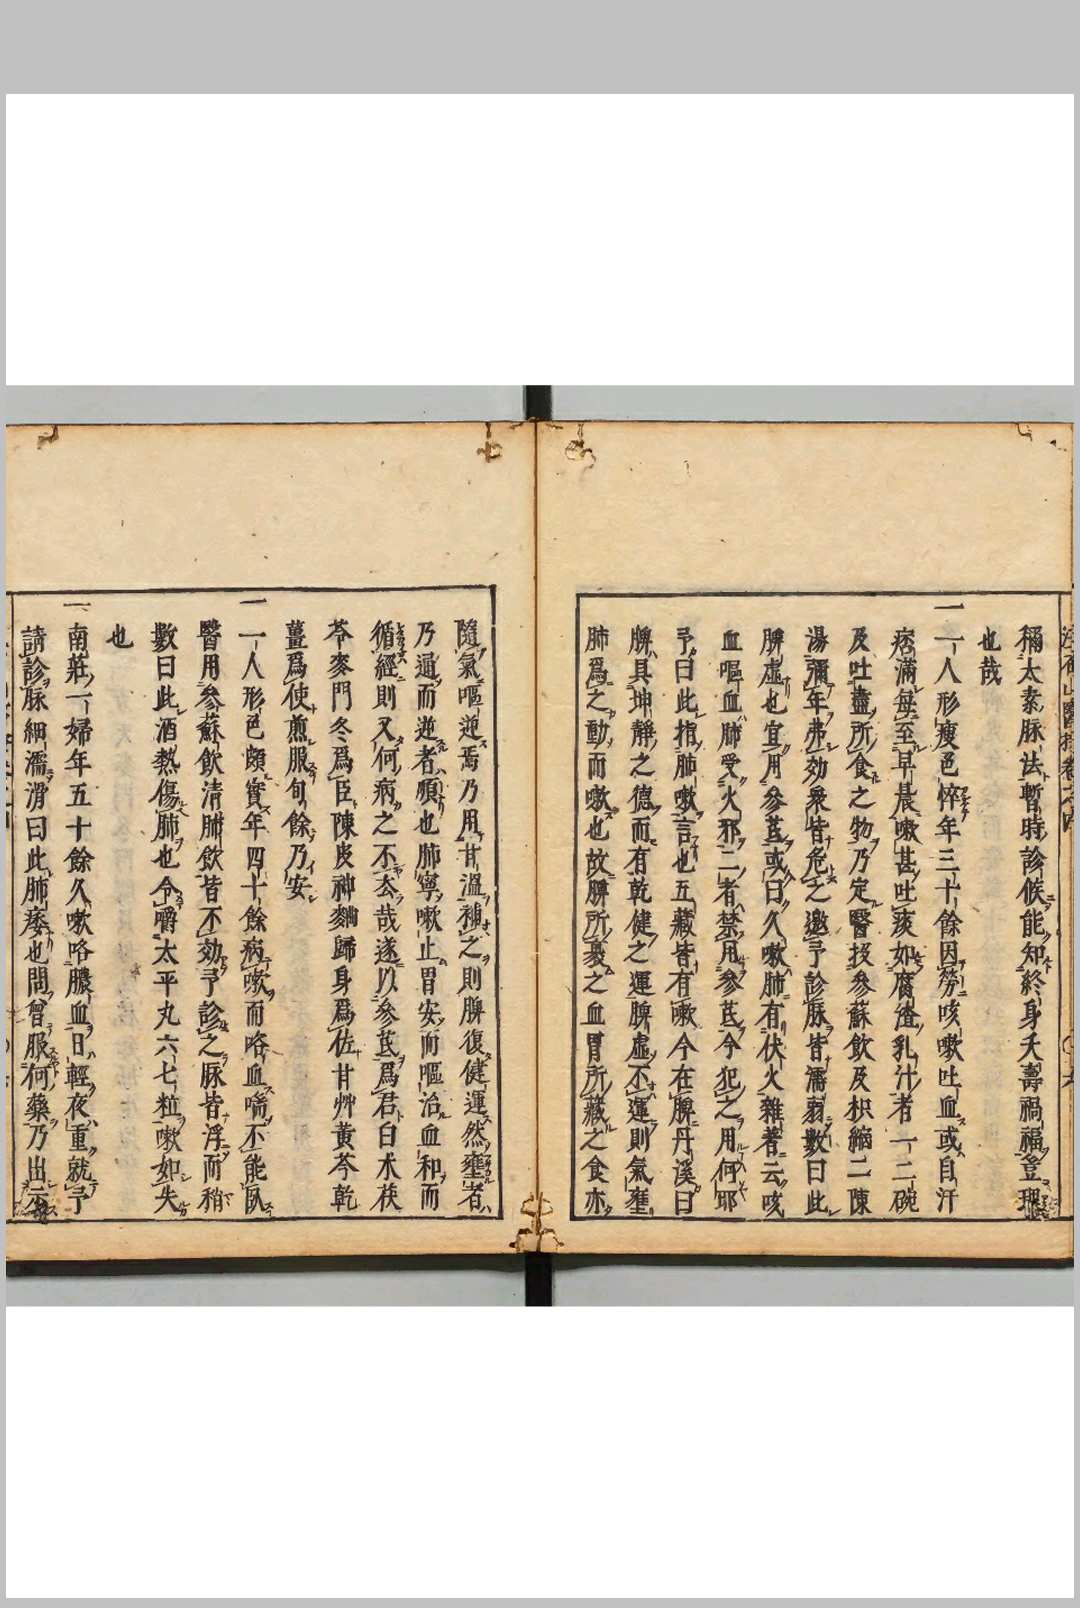 稱太素脉法暫時診候能知終身夭壽禍福豈理
也哉
一一人形瘦色悴年三十餘因勞咳嗽吐血或自汗
痞滿每至早晨嗽甚吐痰如腐渣乳汁者一二碗
及吐盡所食之物乃定醫投參蘇飲及枳縮二陳
湯彌年弗効衆皆危之邀予診脉皆濡弱數曰此
脾虛也宜用參芪或曰久嗽肺有伏火雜著云咳
血嘔血肺受火邪二者禁用參芪今犯之用何耶
予曰此指肺嗽言也五藏皆有嗽今在脾丹溪曰
脾具坤靜之德而有乾健之運脾虛不運則氣壅
肺爲之動而嗽也故脾所裹之血胃所藏之食亦
隨氣嘔逆焉乃用甘溫補之則脾復健運然壅者
乃通而逆者順也肺寧嗽止胃安而嘔治血和而
循經則又何病之不去哉遂以參芪爲君白朮茯
苓麥門冬爲臣陳皮神麯歸身爲佐甘艸黃芩乾
薑爲使煎服旬餘乃安
一一人形色頗實年四十餘病嗽而咯血喘不能臥
醫用參蘇飲清肺飲皆不効予診之脉皆浮而稍
數曰此酒熱傷肺也令嚼太平丸六七粒嗽如失
也
一南莊一婦年五十餘久嗽咯膿血日輕夜重就予
請診脉細濡滑曰此肺痿也問曾服何藥乃出示